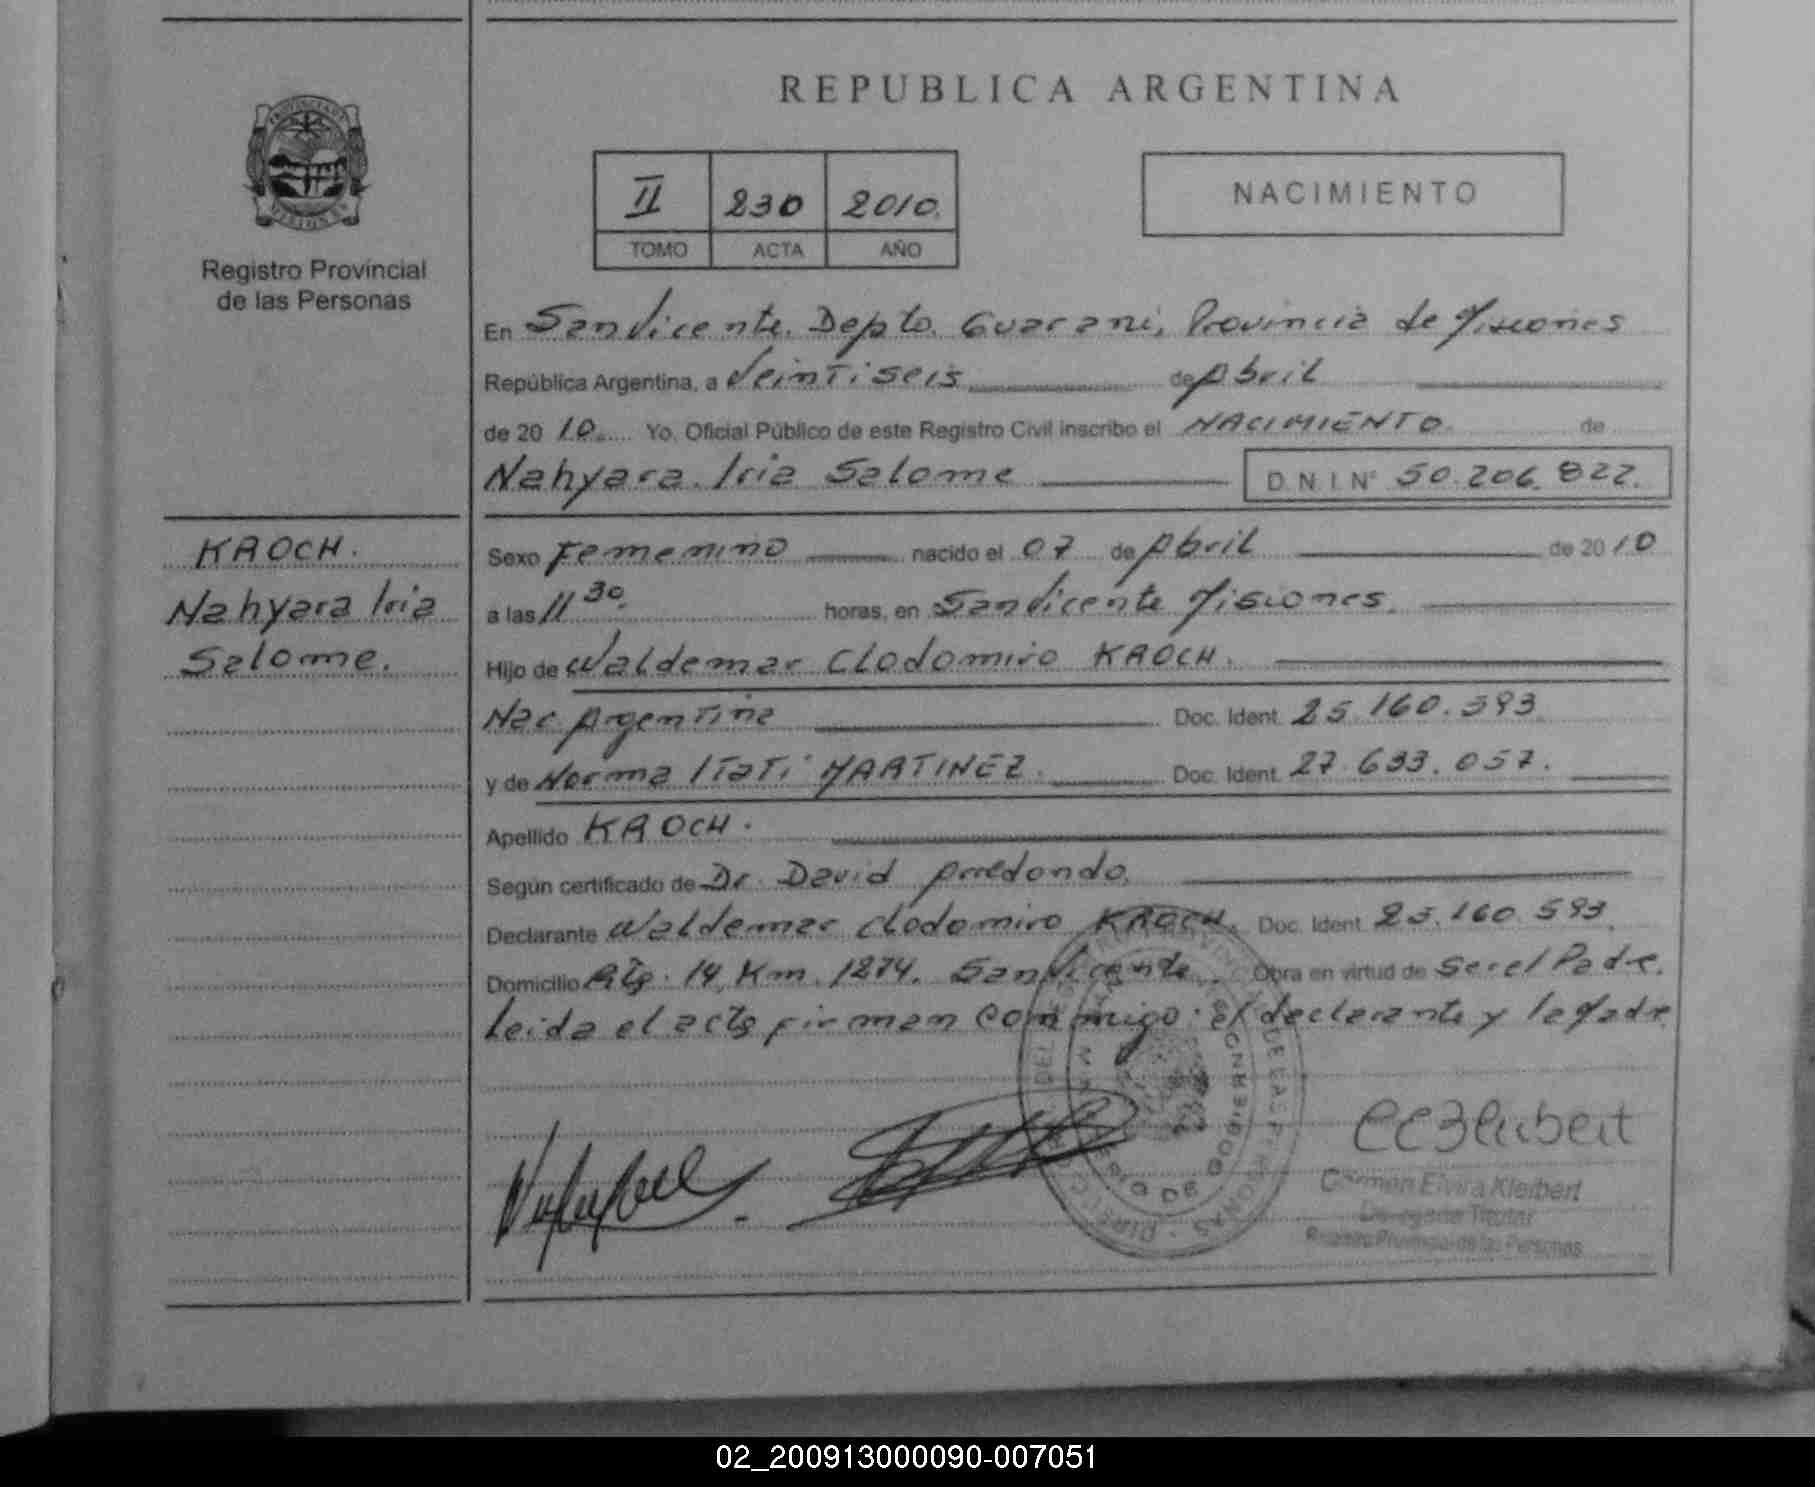 REPUBLICA ARGENTINA
II 230 2010.
TOMO ACTA AÑO
NACIMIENTO
Registro Provincial
de las Personas
En San Vicente. Depto. Guarani, Provincia de Misiones
República Argentina, a Veintiseis de Abril
de 20 10. Yo, Oficial Público de este Registro Civil inscribo el NACIMIENTO de
Nahyara Iria Salome D.N.I. Nº 50.206.822.
KROCH.
Nahyara Iria
Salome.
Sexo Femenino nacido el 07 de Abril de 20 10
a las 11 30 horas, en San Vicente Misiones.
Hijo de Waldemar Clodomiro KROCH.
Nac. Argentina Doc. Ident. 25.160.593
y de Norma Itati MARTINEZ. Doc. Ident. 27.633.057.
Apellido KROCH.
Según certificado de Dr. David Arredondo.
Declarante Waldemar Clodomiro KROCH. Doc. Ident. 25.160.593
Domicilio Rta. 14 Km. 1274. San Vicente. Obra en virtud de Ser el Padre.
Leida el acta firman conmigo: el declarante y la Madre
Carmen Elvira Kleibert
Delegada Titular
Registro Provincial de las Personas
02_200913000090-007051